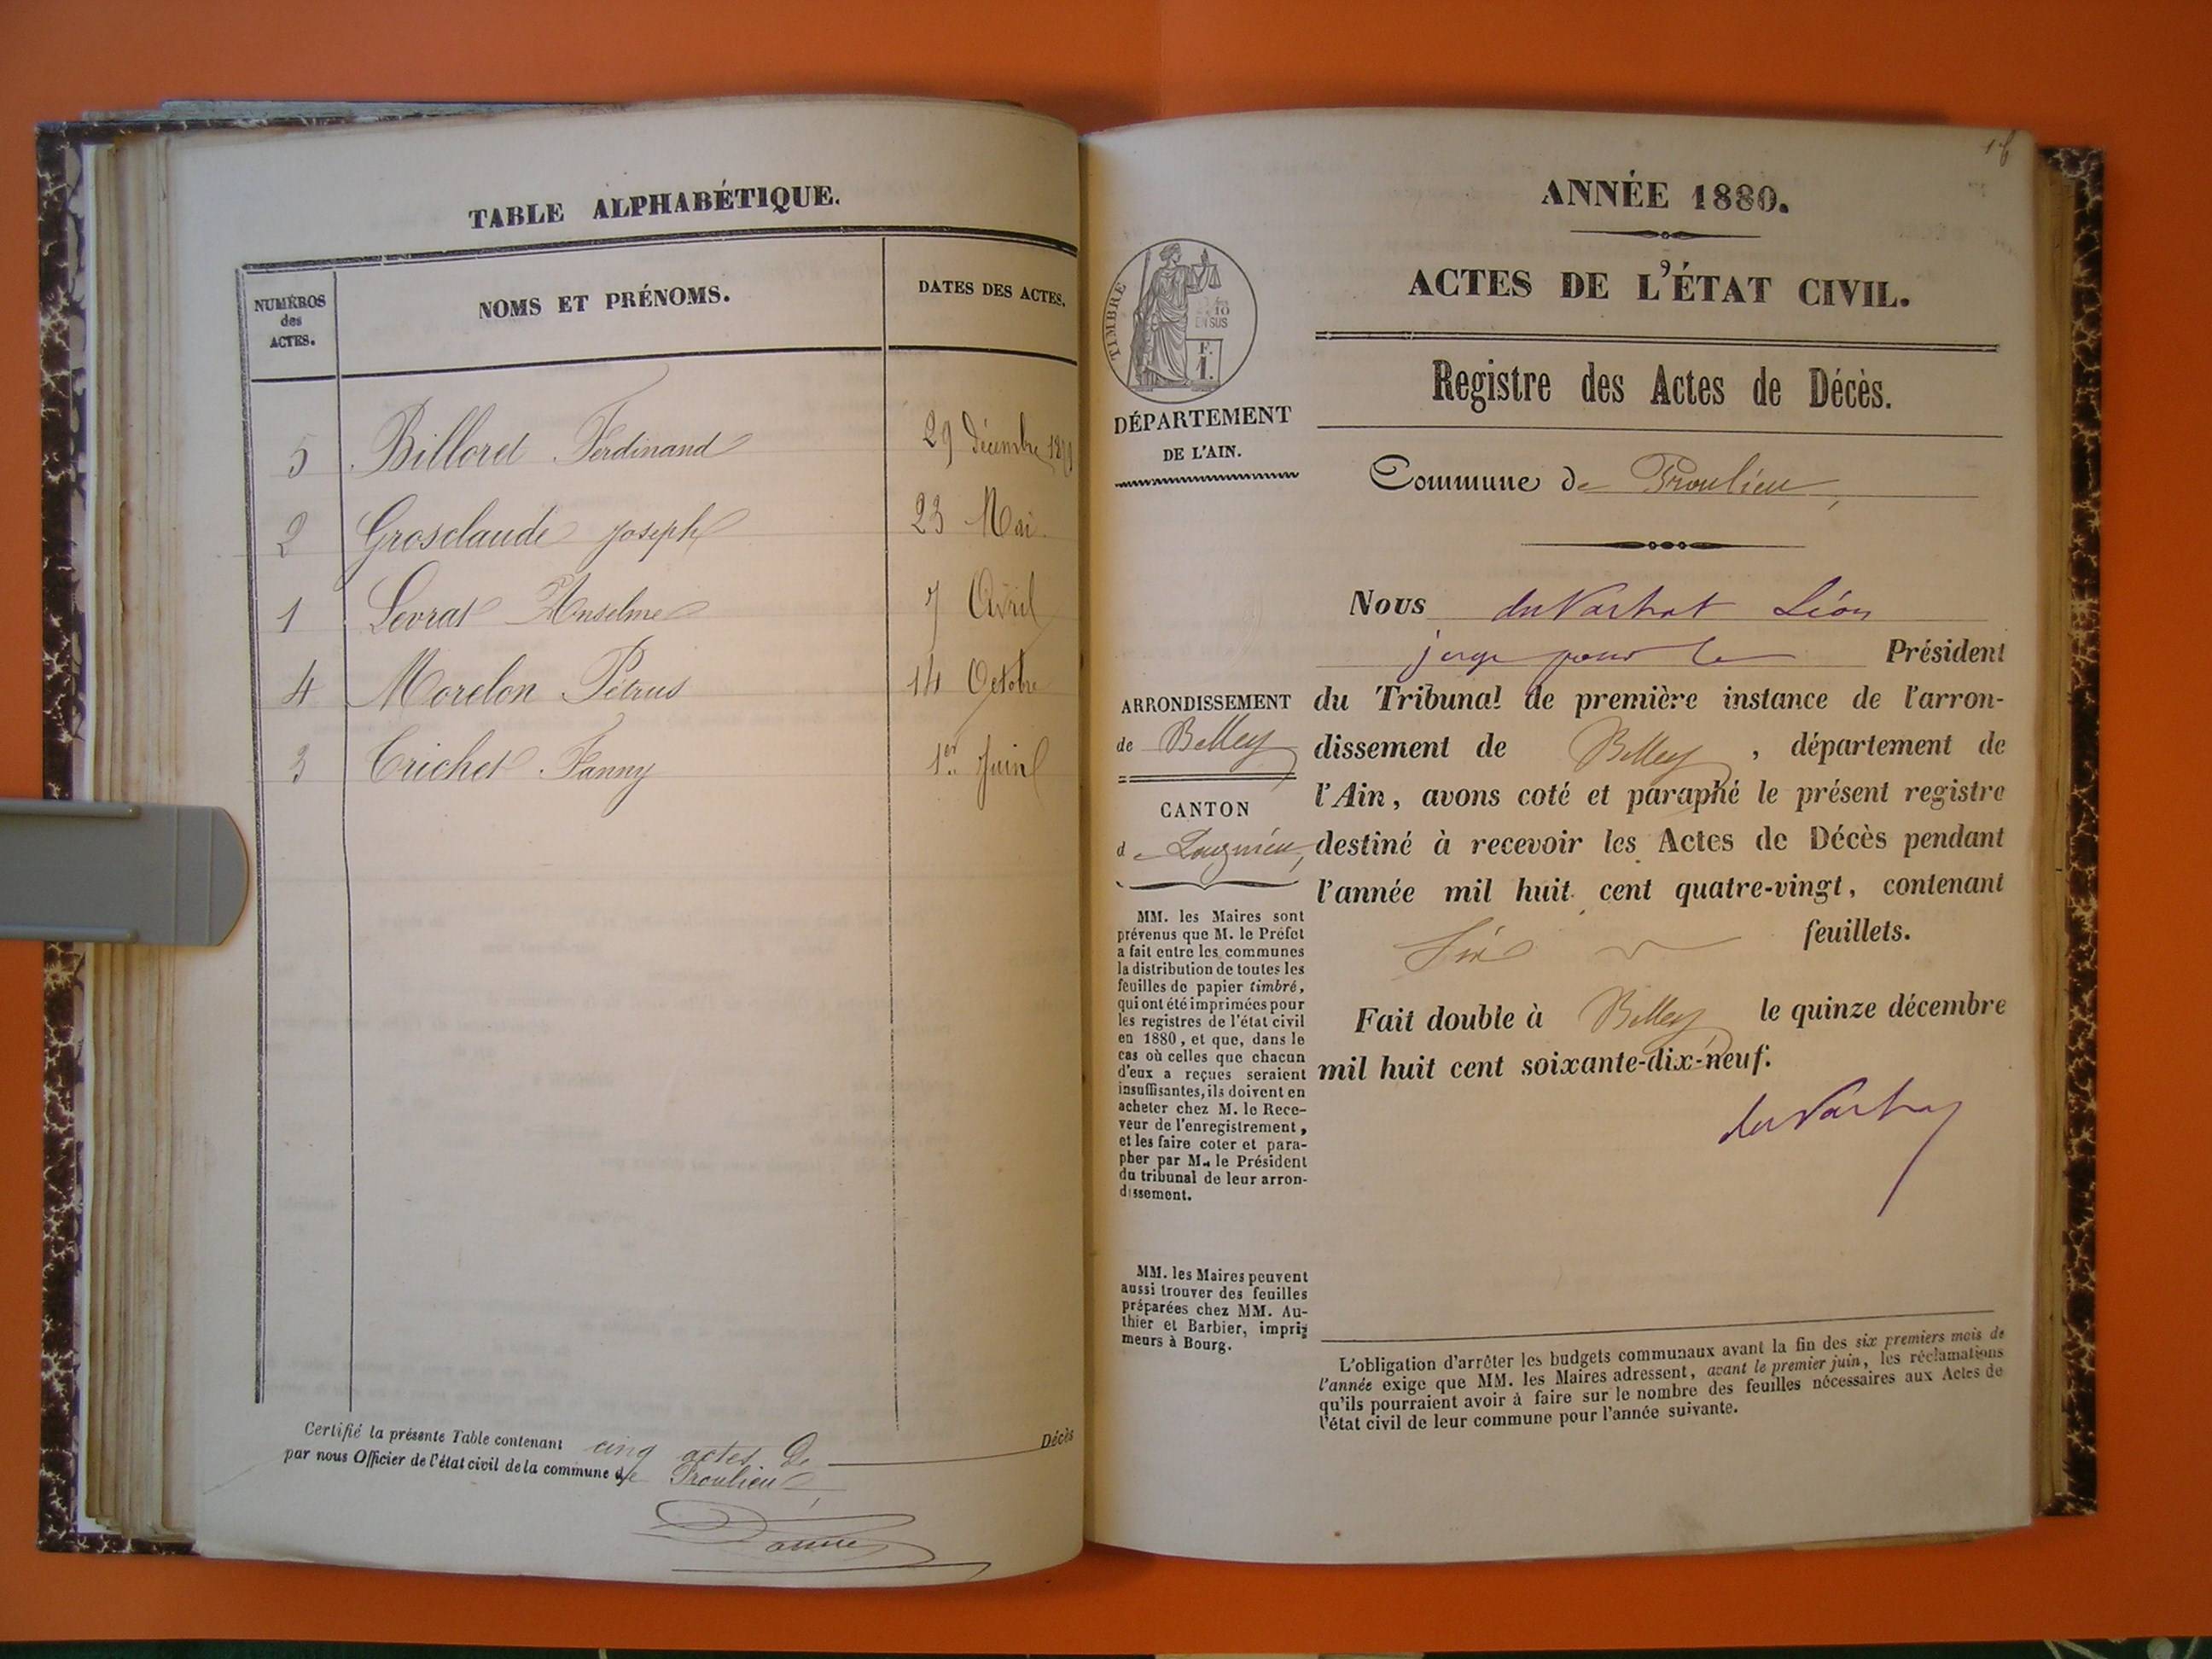 TABLE ALPHABÉTIQUE.
NUMÉROS
des
ACTES.
NOMS ET PRÉNOMS.
DATES DES ACTES.
5 Billoret Ferdinand 29 décembre 1879
2 Grosclaude Joseph 23 Mai
1 Levrat Anselme 7 Avril
4 Morelon Pétrus 14 Octobre
3 Trichet Fanny 1er Juin
Certifié la présente Table contenant cinq actes de Décès
par nous Officier de l'état civil de la commune de Proulieu
1f
ANNÉE 1880.
ACTES DE L'ÉTAT CIVIL.
Registre des Actes de Décès.
TIMBRE
10
EN SUS
F.
1.
DÉPARTEMENT
DE L'AIN.
Commune de Proulieu,
Nous Léon
juge pour le Président
du Tribunal de première instance de l'arron-
dissement de Belley, département de
l'Ain, avons coté et paraphé le présent registre
destiné à recevoir les Actes de Décès pendant
l'année mil huit cent quatre-vingt, contenant
Six feuillets.
Fait double à Belley le quinze décembre
mil huit cent soixante-dix-neuf.
ARRONDISSEMENT
de Belley
CANTON
de Lagnieu,
MM. les Maires sont
prévenus que M. le Préfet
a fait entre les communes
la distribution de toutes les
feuilles de papier timbré,
qui ont été imprimées pour
les registres de l'état civil
en 1880, et que, dans le
cas où celles que chacun
d'eux a reçues seraient
insuffisantes, ils doivent en
acheter chez M. le Rece-
veur de l'enregistrement,
et les faire coter et para-
pher par M. le Président
du tribunal de leur arron-
dissement.
MM. les Maires peuvent
aussi trouver des feuilles
préparées chez MM. Au-
thier et Barbier, impri-
meurs à Bourg.
L'obligation d'arrêter les budgets communaux avant la fin des six premiers mois de
l'année exige que MM. les Maires adressent, avant le premier juin, les réclamations
qu'ils pourraient avoir à faire sur le nombre des feuilles nécessaires aux Actes de
l'état civil de leur commune pour l'année suivante.